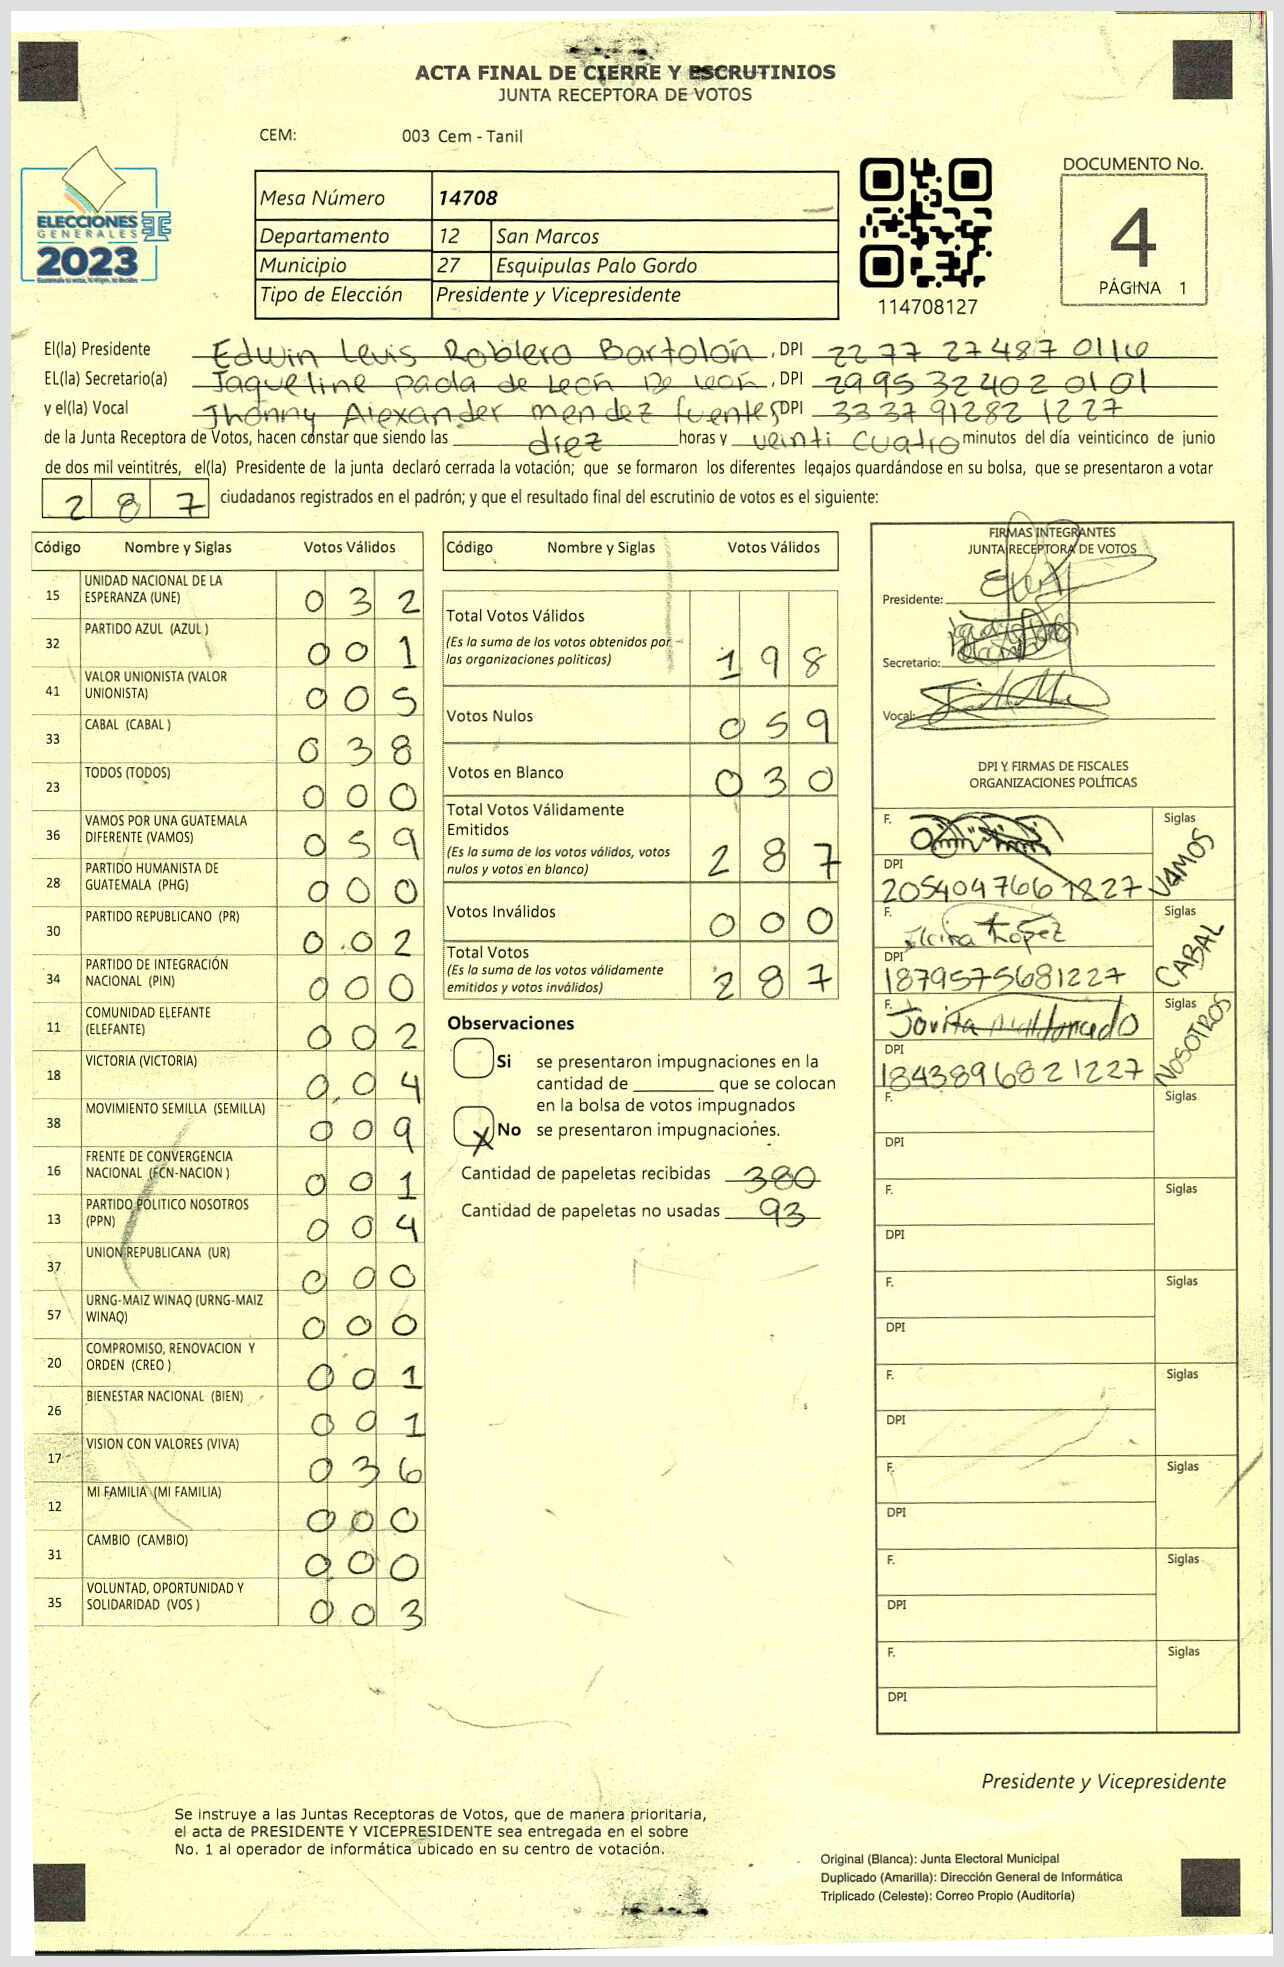 ACTA FINAL DE CIERRE Y ESCRUTINIOS
JUNTA RECEPTORA DE VOTOS
CEM: 003 Cem - Tanil
ELECCIONES
GENERALES
2023
Mesa Número 14708
Departamento 12 San Marcos
Municipio 27 Esquipulas Palo Gordo
Tipo de Elección Presidente y Vicepresidente
114708127
DOCUMENTO No.
4
PÁGINA 1
El(la) Presidente Edwin Levis Roblero Bartolón, DPI 2277 27487 0116
EL(la) Secretario(a) Jaqueline paola de León De león, DPI 2995 32402 0101
y el(la) Vocal Jhonny Alexander mendez fuentes DPI 3337 91282 1227
de la Junta Receptora de Votos, hacen constar que siendo las diez horas y veinti cuatro minutos del día veinticinco de junio
de dos mil veintitrés, el(la) Presidente de la junta declaró cerrada la votación; que se formaron los diferentes legajos guardándose en su bolsa, que se presentaron a votar
287 ciudadanos registrados en el padrón; y que el resultado final del escrutinio de votos es el siguiente:
Código Nombre y Siglas Votos Válidos
15 UNIDAD NACIONAL DE LA ESPERANZA (UNE) 032
32 PARTIDO AZUL (AZUL ) 001
41 VALOR UNIONISTA (VALOR UNIONISTA) 005
33 CABAL (CABAL ) 038
23 TODOS (TODOS) 000
36 VAMOS POR UNA GUATEMALA DIFERENTE (VAMOS) 059
28 PARTIDO HUMANISTA DE GUATEMALA (PHG) 000
30 PARTIDO REPUBLICANO (PR) 002
34 PARTIDO DE INTEGRACIÓN NACIONAL (PIN) 000
11 COMUNIDAD ELEFANTE (ELEFANTE) 002
18 VICTORIA (VICTORIA) 004
38 MOVIMIENTO SEMILLA (SEMILLA) 009
16 FRENTE DE CONVERGENCIA NACIONAL (FCN-NACION ) 001
13 PARTIDO POLITICO NOSOTROS (PPN) 004
37 UNION REPUBLICANA (UR) 000
57 URNG-MAIZ WINAQ (URNG-MAIZ WINAQ) 000
20 COMPROMISO, RENOVACION Y ORDEN (CREO ) 001
26 BIENESTAR NACIONAL (BIEN) 001
17 VISION CON VALORES (VIVA) 036
12 MI FAMILIA (MI FAMILIA) 000
31 CAMBIO (CAMBIO) 000
35 VOLUNTAD, OPORTUNIDAD Y SOLIDARIDAD (VOS ) 003
Código Nombre y Siglas Votos Válidos
Total Votos Válidos
(Es la suma de los votos obtenidos por
las organizaciones políticas) 198
Votos Nulos 059
Votos en Blanco 030
Total Votos Válidamente
Emitidos
(Es la suma de los votos válidos, votos
nulos y votos en blanco) 287
Votos Inválidos 000
Total Votos
(Es la suma de los votos válidamente
emitidos y votos inválidos) 287
Observaciones
Si se presentaron impugnaciones en la
cantidad de ________ que se colocan
en la bolsa de votos impugnados
X No se presentaron impugnaciones.
Cantidad de papeletas recibidas 380
Cantidad de papeletas no usadas 93
FIRMAS INTEGRANTES
JUNTA RECEPTORA DE VOTOS
Presidente:
Secretario:
Vocal:
DPI Y FIRMAS DE FISCALES
ORGANIZACIONES POLÍTICAS
F. Siglas VAMOS
DPI
2054047661227
F. López Siglas CABAL
DPI
1879575681227
F. Jovita Maldonado Siglas NOSOTROS
DPI
1843896821227
F. Siglas
DPI
F. Siglas
DPI
F. Siglas
DPI
F. Siglas
DPI
F. Siglas
DPI
F. Siglas
DPI
F. Siglas
DPI
Presidente y Vicepresidente
Se instruye a las Juntas Receptoras de Votos, que de manera prioritaria,
el acta de PRESIDENTE Y VICEPRESIDENTE sea entregada en el sobre
No. 1 al operador de informática ubicado en su centro de votación.
Original (Blanca): Junta Electoral Municipal
Duplicado (Amarilla): Dirección General de Informática
Triplicado (Celeste): Correo Propio (Auditoría)